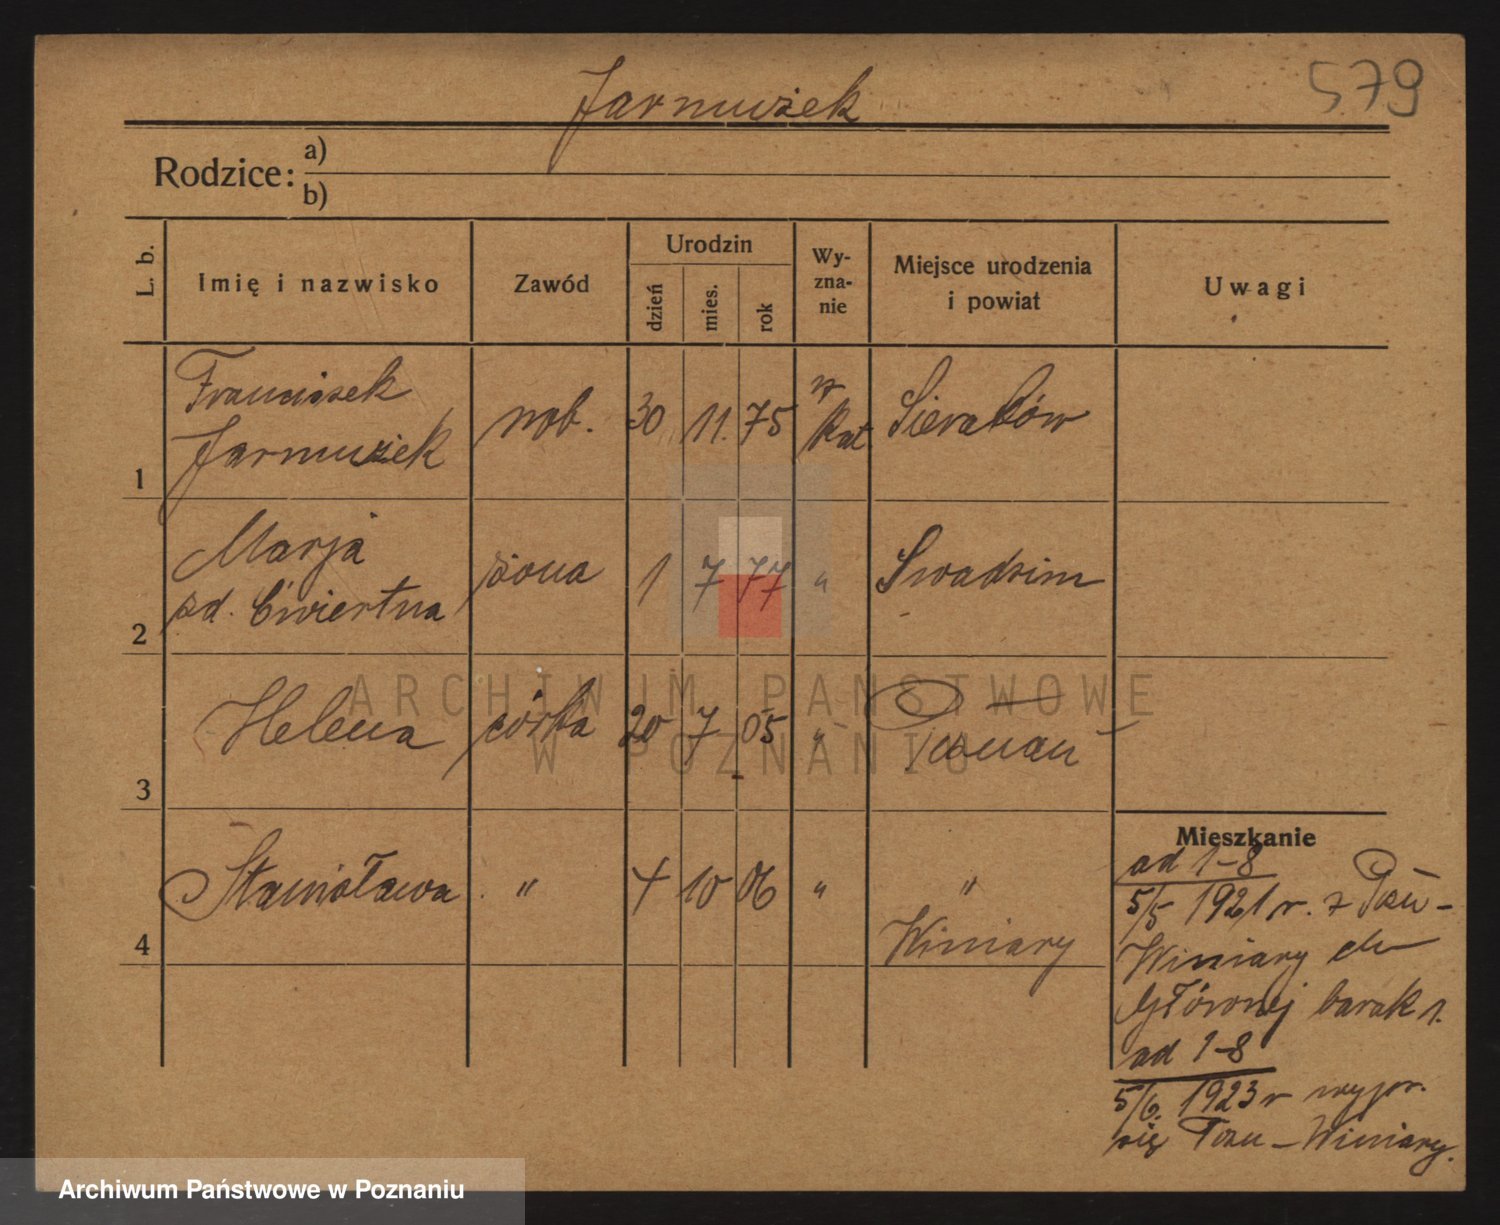 579
Jarmużek
Rodzice: a)
b)
L. b.
Imię i nazwisko
Zawód
Urodzin
dzień
mies.
rok
Wy-
zna-
nie
Miejsce urodzenia
i powiat
Uwagi
Franciszek
Jarmużek
1
rob.
30
11.
75
rz
Kat
Sieraków
Marja
zd. Ćwiertna
2
żona
1
7
77
"
Swadzim
Helena
3
córka
20
7
05
"
Poznań
Stanisława
4
"
4
10
06
"
"
Winiary
Mieszkanie
ad 1-8
5/5 1921 r. z Pozn-
Winiary do
Głównej barak 1.
ad 1-8
5/6. 1923 r wypr.
się Pozn - Winiary.
ARCHIWUM PAŃSTWOWE
W POZNANIU
Archiwum Państwowe w Poznaniu